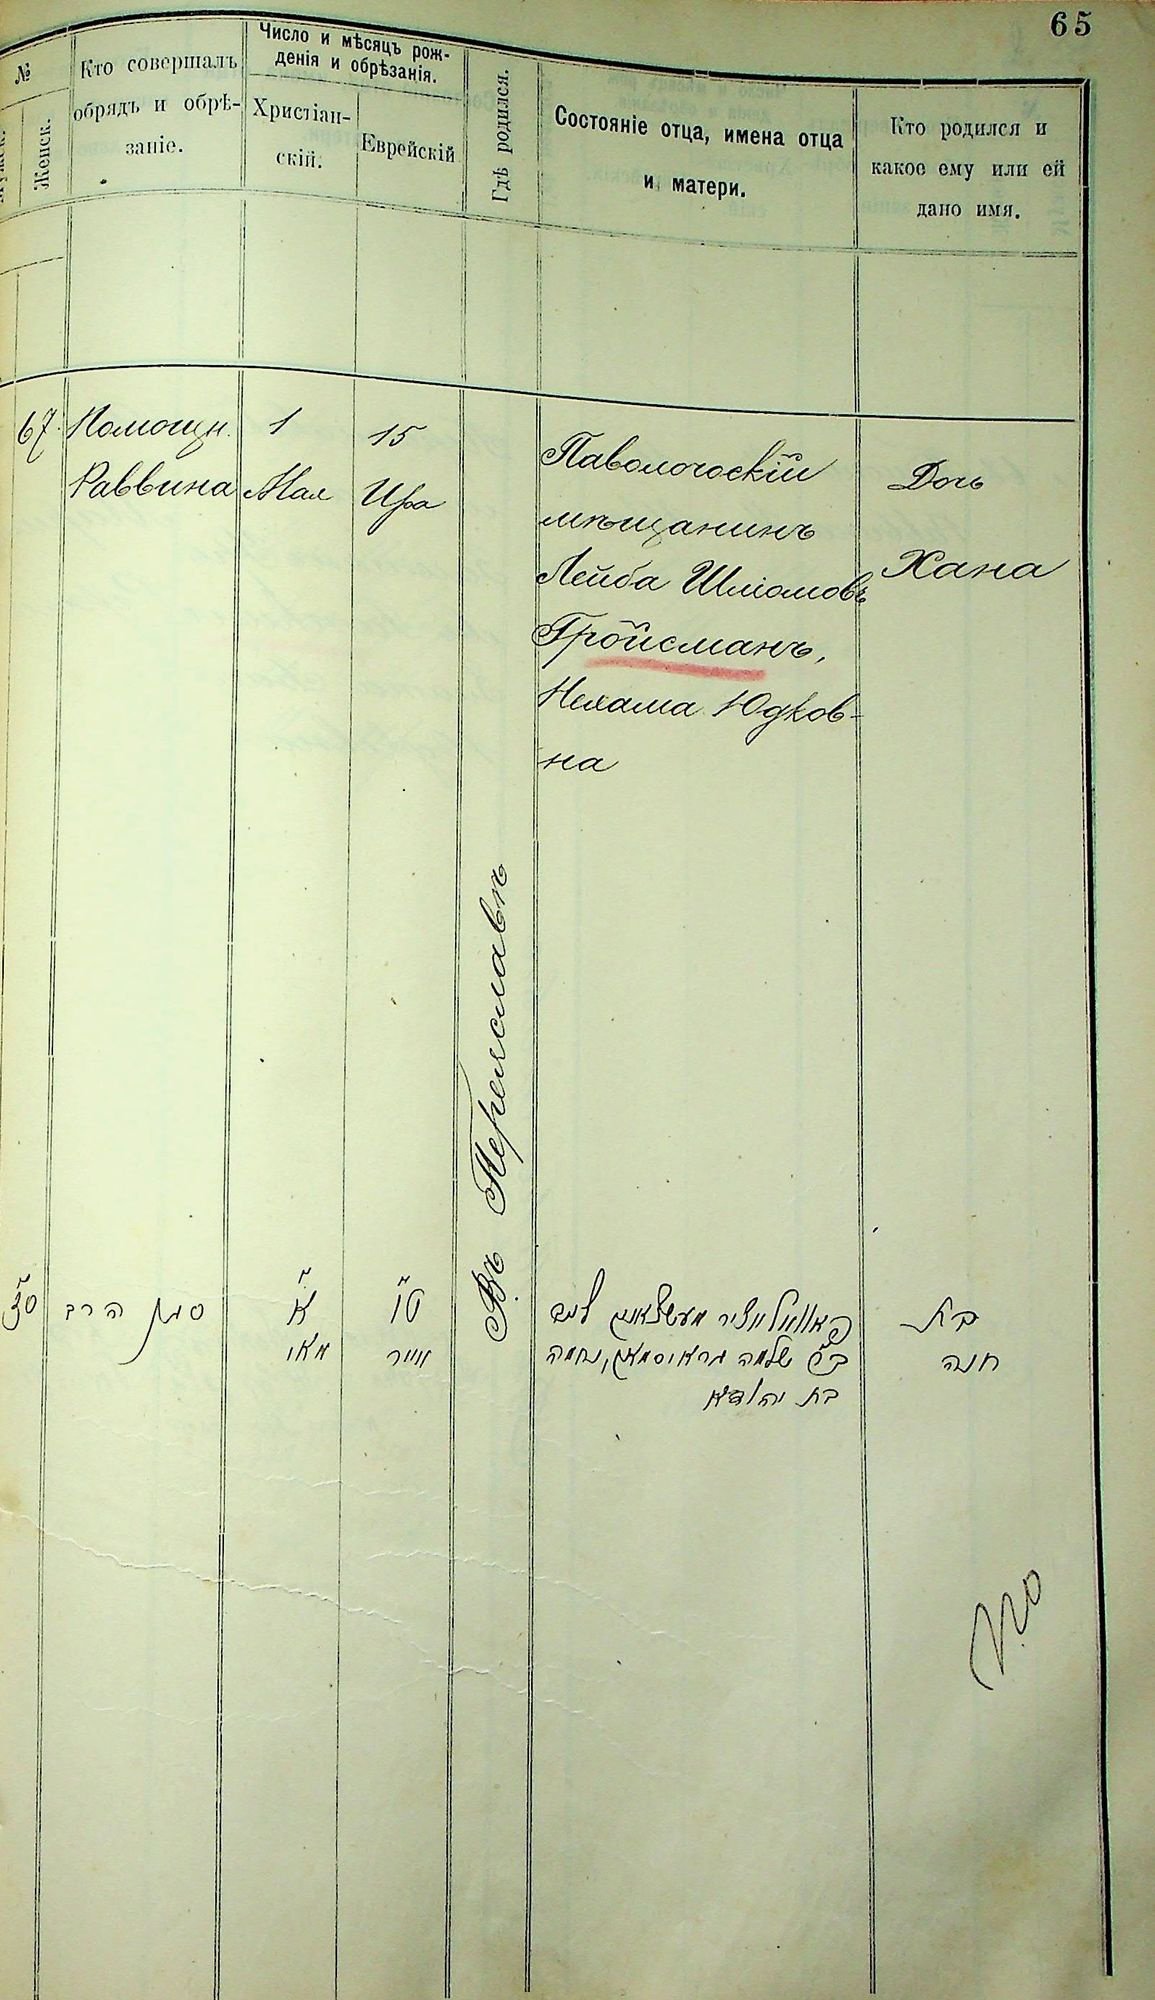 65
№
Мужск.
Женск.
Кто совершалъ
обрядъ и обрѣ-
заніе.
Число и мѣсяцъ рож-
денія и обрѣзанія.
Христіан-
скій.
Еврейскій
Гдѣ родился.
Состояніе отца, имена отца
и матери.
Кто родился и
какое ему или ей
дано имя.
67
Помощн.
Раввина
1
Мая
15
Ира
Въ Переяславѣ
Паволочоскій
мѣщанинъ
Лейба Шліомовъ
Гройсманъ,
Нехама Юдков-
на
Дочь
Хана
הרב
א
מאי
ט״ו
אייר
שלמה גראיסמאן, נחמה
בת יהודא
בת
חנה